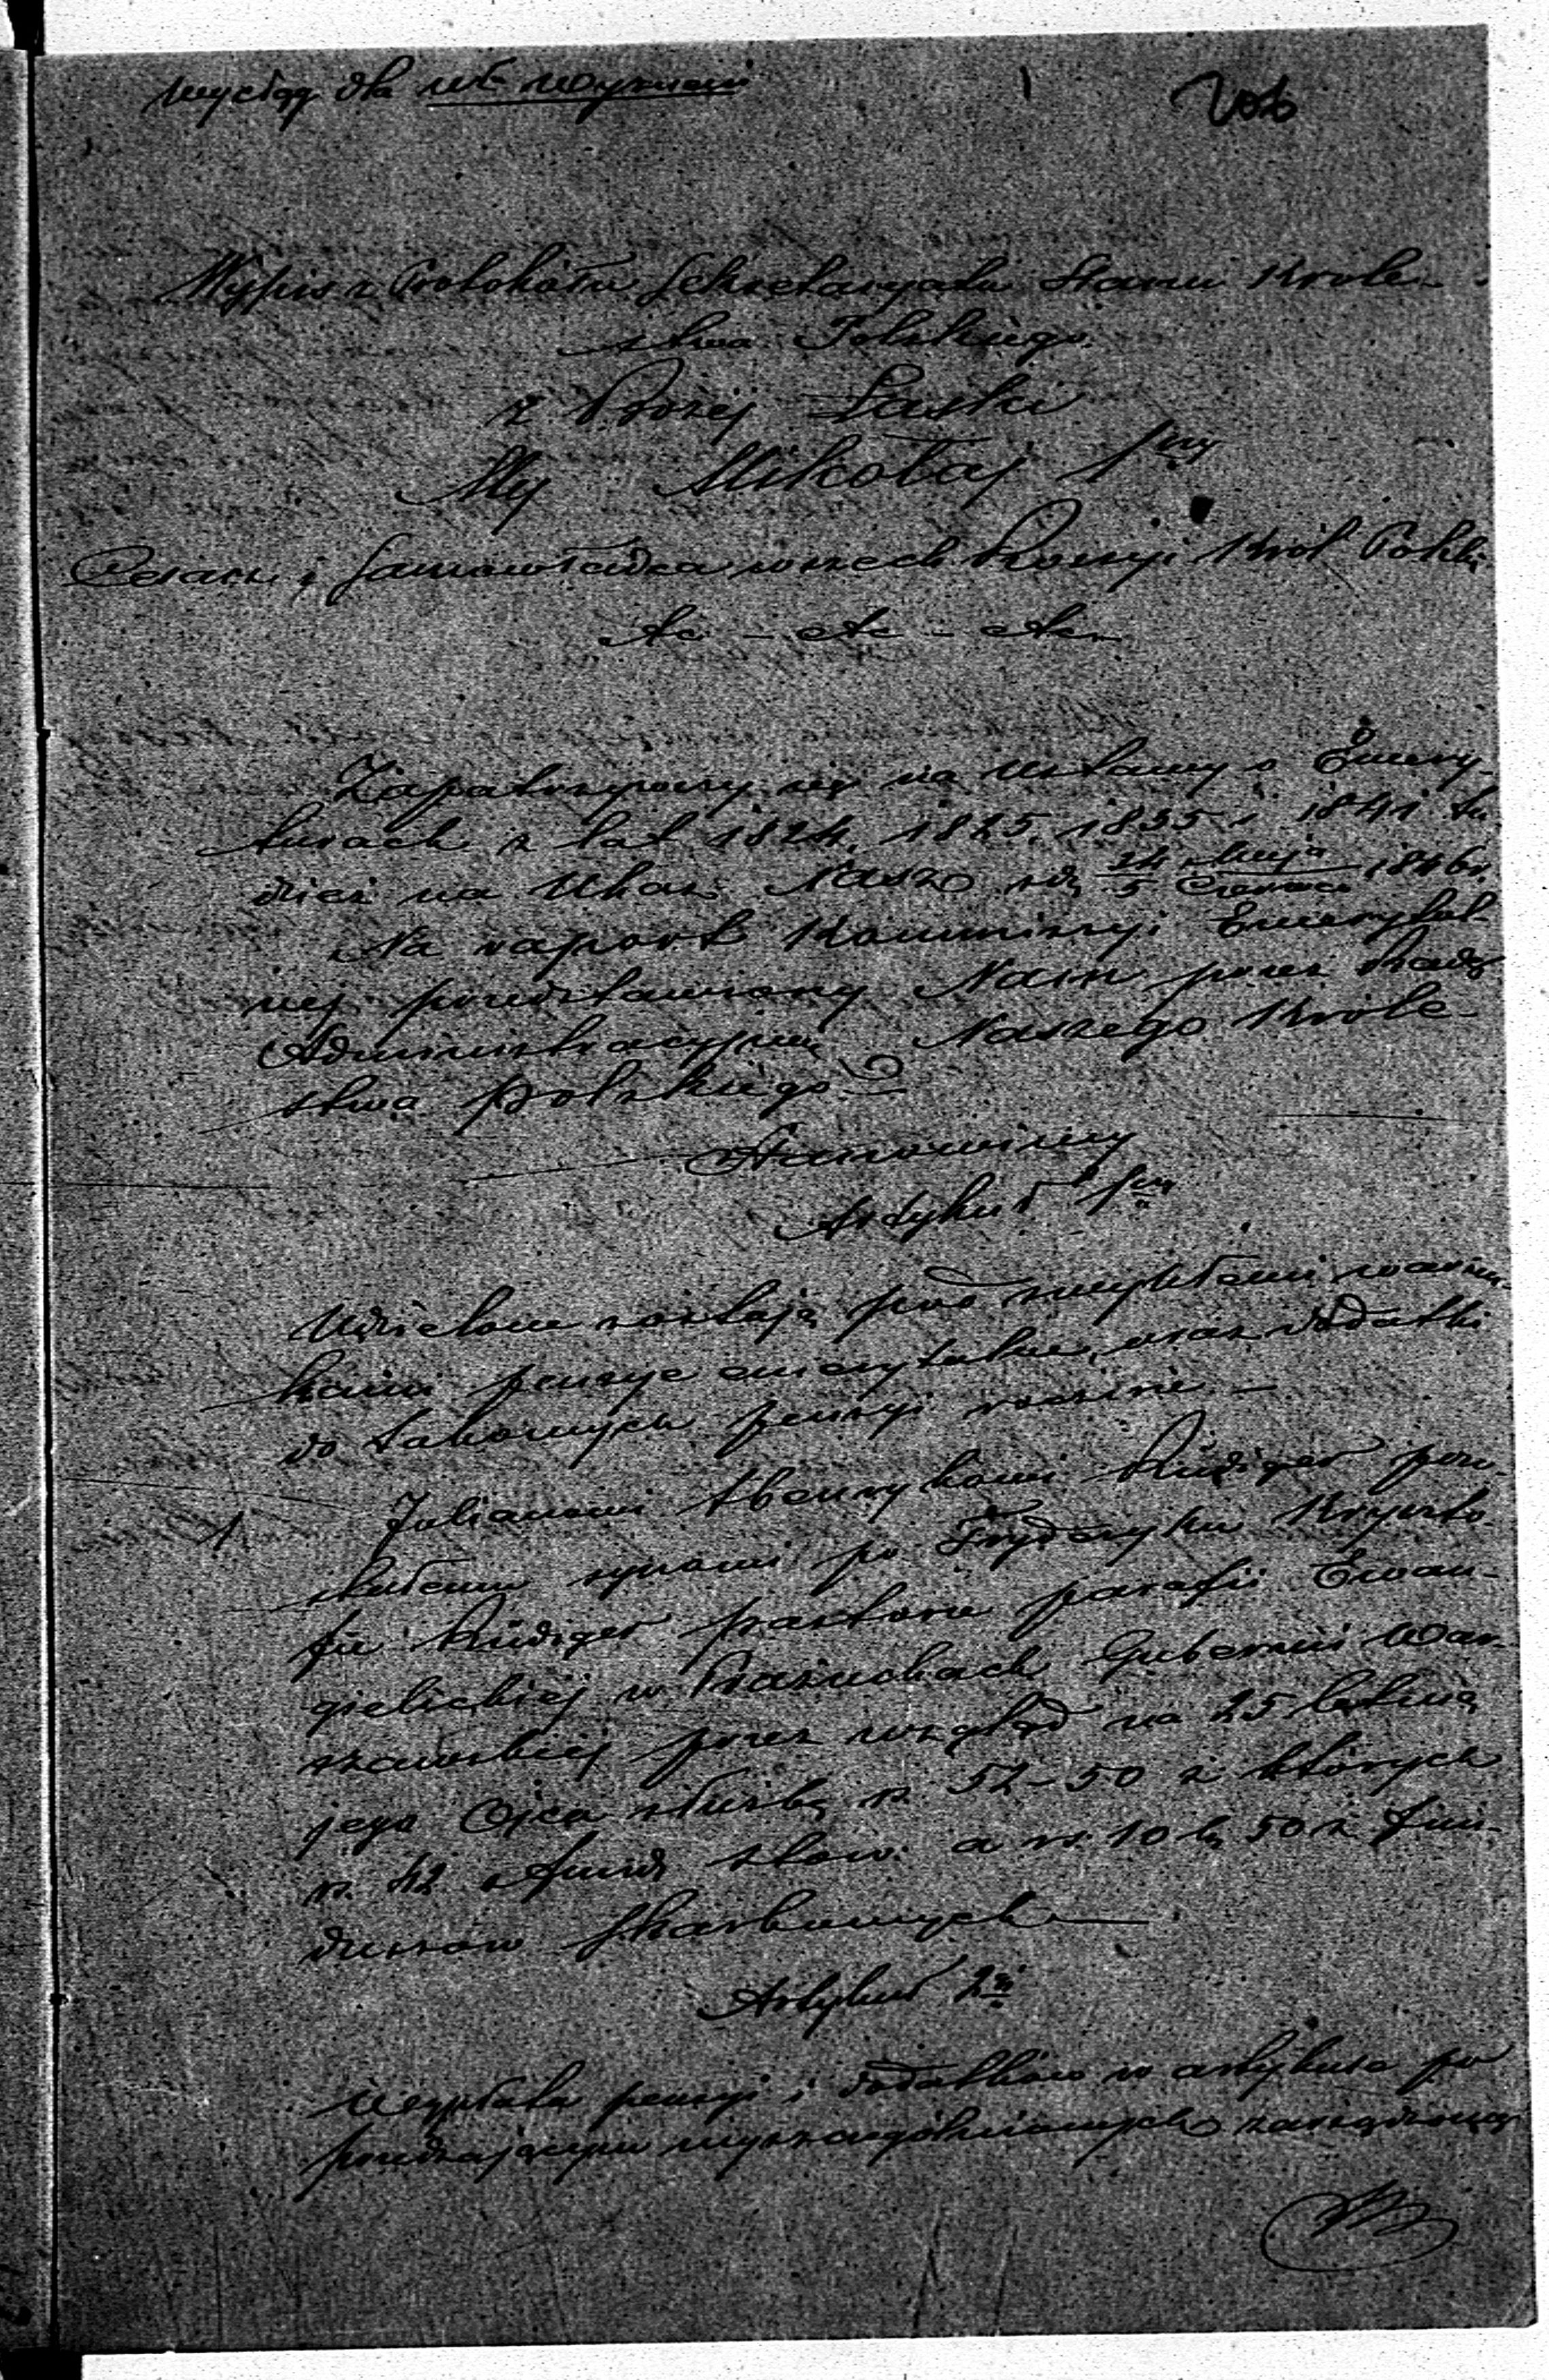 Wyciąg dla Wł. Wyznań
Wypis z Protokółu Sekretaryatu Stanu Króle-
stwa Polskiego.
z Bożej Łaski
My Mikołaj Iszy
Cesarz i Samowładca wszech Rossyi Król Polski
&c - &c - &c
Zapatrzywszy się na Ustawy o Emery-
turach z lat 1824, 1825, 1835 i 1841 tu
dzież na Ukaz Nasz z d. 24 Maja / 5 Czerwca 1846 r.
Na raport Kommissyi Emerytal
nej przedstawiony Nam przez Radę
Administracyjną Naszego Króle-
stwa Polskiego
Stanowimy
Artykuł 1szy
Udzielone zostają pod zwykłemi warun-
kami pensye emerytalne, oraz dodatki
do takowych pensyi rocznie. -
1 Julianowi Henrykowi Rüdiger pozo-
stałemu synowi po Fryderyku Krysto-
fie Rüdiger pastorze parafii Ewan-
gielickiej w Prażuchach Gubernii War-
szawskiej przez wzgląd na 25 letnią
jego Ojca służbę rs. 52-50 z których
rs. 42 z fund. stow. a rs. 10 k. 50 z fun-
duszów Skarbowych
Artykuł 2gi
Wypłata pensyi i dodatków w artykule po
przedzającym wyszczególnionych zarządzoną